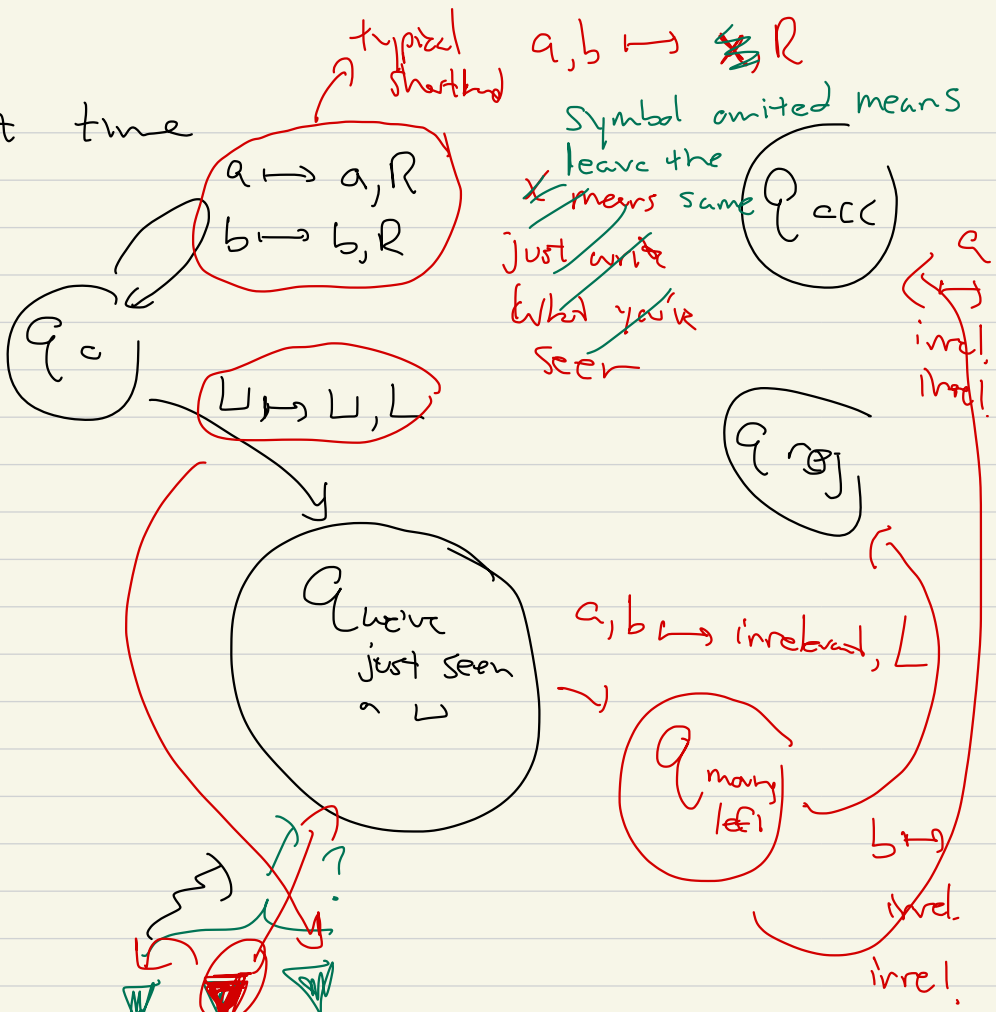 typical
shorthand
a, b ↦ R
t time
symbol omited means
leave the
same
x means
just write
what you're
seen
a ↦ a, R
b ↦ b, R
q acc
q 0
⊔ ↦ ⊔, L
a ↦
irrel.
irrel.
q rej
q we've
just seen
a ⊔
a, b ↦ irrelevant, L
q moving
left
b ↦
irrel.
irrel.
?